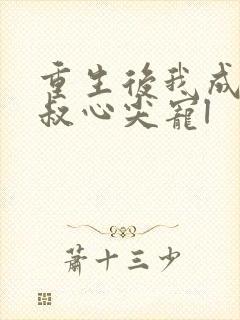 重生後我成
叔心尖寵1
蕭十三少